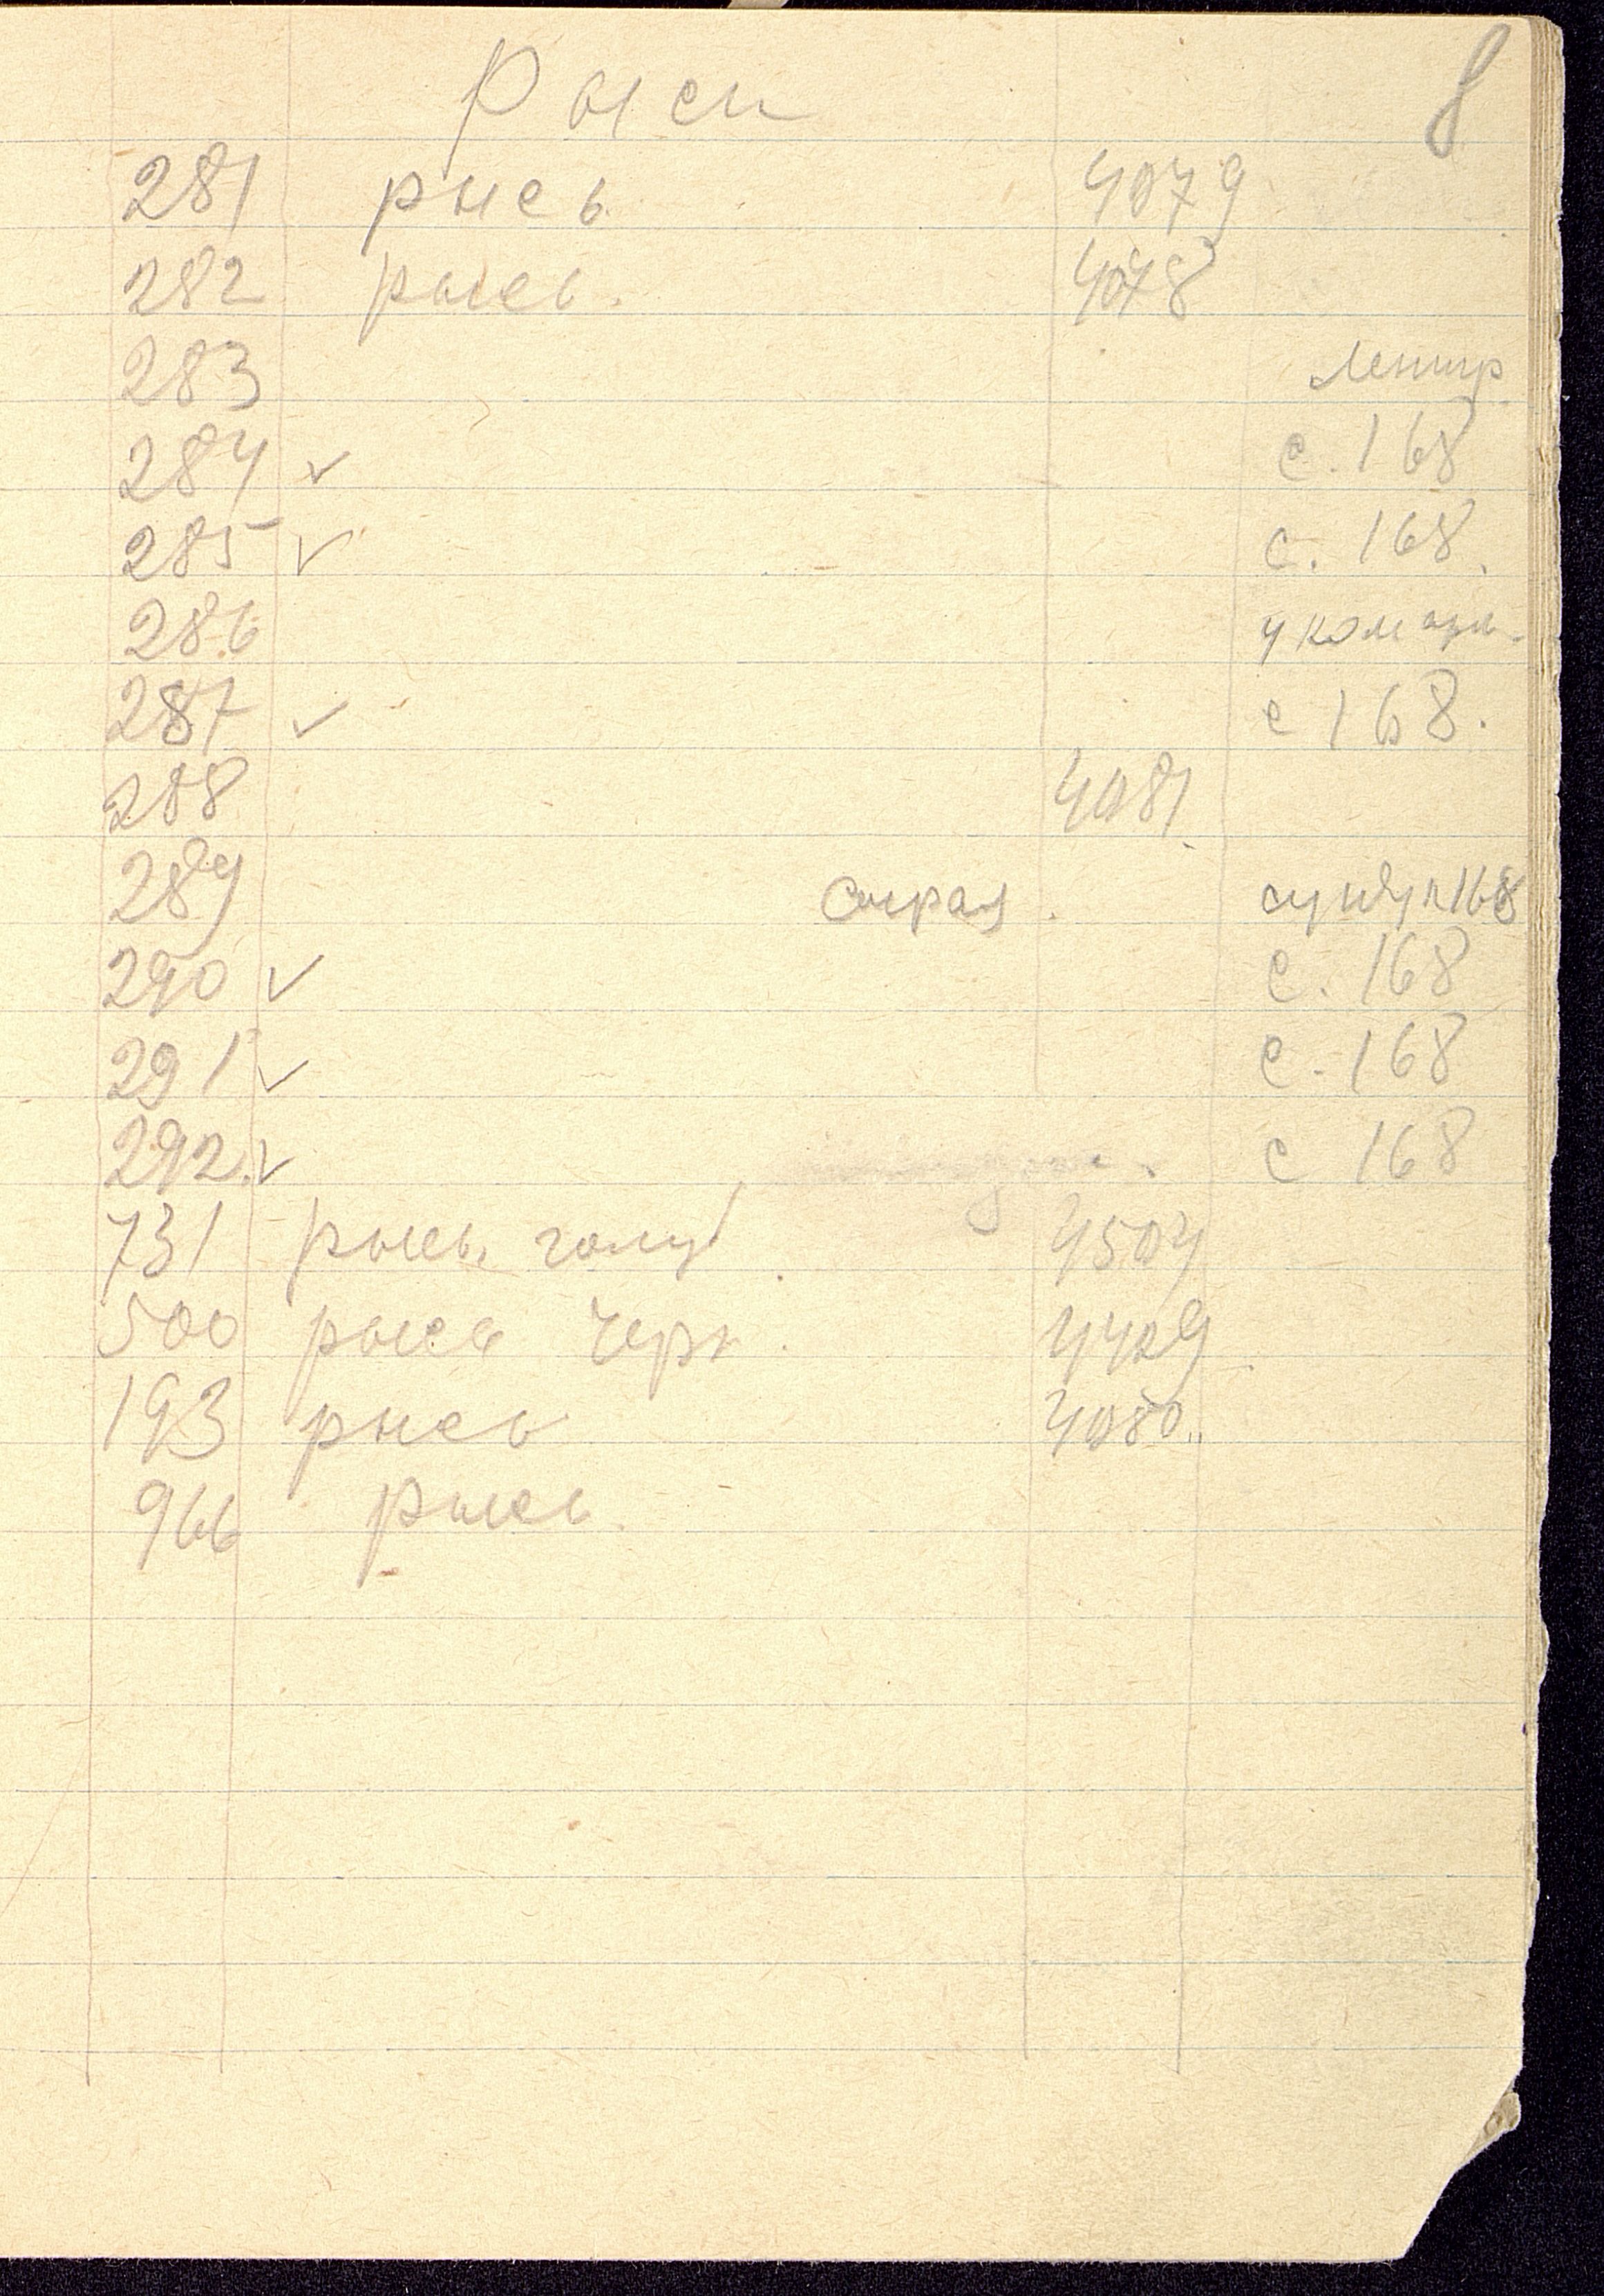 Рыси 8
281 рысь 4079
282 рысь. 4078
283 Ленигр
284 ✓ с. 168
285 ✓ с. 168.
286
287 ✓ с 168.
288 4081.
289 сундук 168
290 ✓ с. 168
291 ✓ с. 168
292. ✓ с 168
731 рысь голуб 4504
500 рысь черн. 4429
193 рысь 4080
966 рысь.